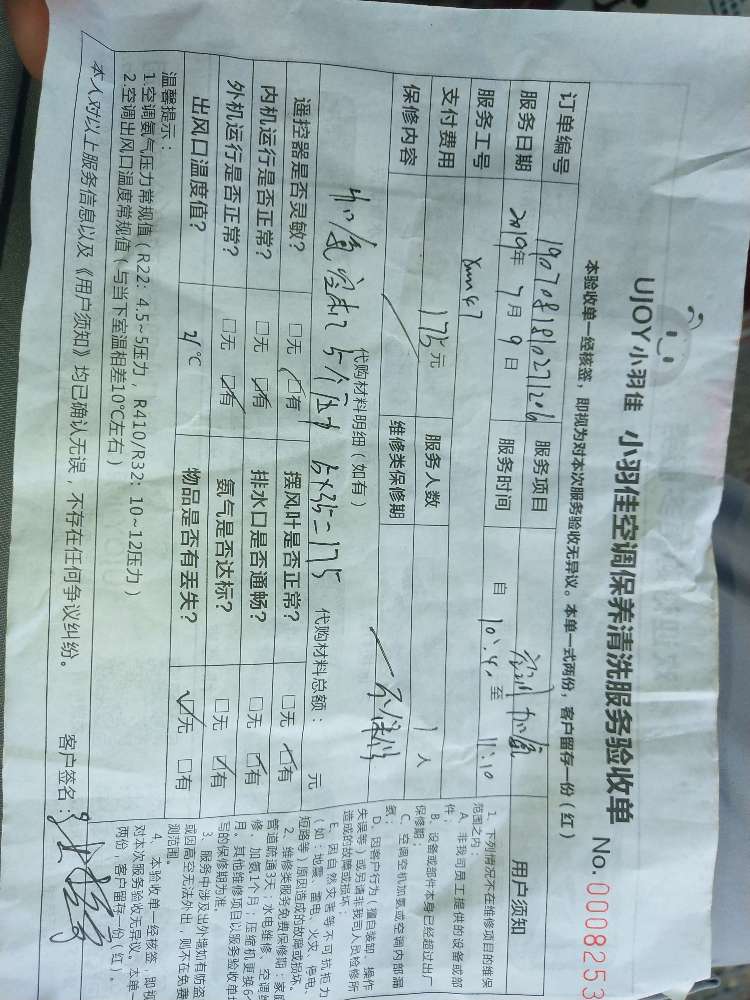 UJOY小羽佳 小羽佳空调保养清洗服务验收单 No.0008253
本验收单一经核签，即视为对本次服务验收无异议。本单一式两份，客户留存一份（红）
订单编号 服务项目 空调加氟
服务日期 2019年7月9日 服务时间 自10:40至11:10
服务工号 xm47
支付费用 175元 服务人数 1人
保修内容 维修类保修期
代购材料明细（如有）
5×35=175 代购材料总额： 元
遥控器是否灵敏？ □无 ☑有 摆风叶是否正常？ □无 ☑有
内机运行是否正常？ □无 ☑有 排水口是否通畅？ □无 ☑有
外机运行是否正常？ □无 ☑有 氨气是否达标？ □无 ☑有
出风口温度值？ 21℃ 物品是否有丢失？ ☑无 □有
温馨提示：
1.空调氨气压力常规值（R22：4.5~5压力，R410/R32：10~12压力）
2.空调出风口温度常规值（与当下室温相差10℃左右）
本人对以上服务信息以及《用户须知》均已确认无误，不存在任何争议纠纷。
客户签名：
用户须知
1、下列情况不在维修项目的维保
范围之内：
A、非我司员工提供的设备或部
件；
B、设备或部件本身已经超过出厂
保修期；
C、空调内机加氨或空调内部漏
氨；
D、因客户行为（擅自装卸、操作
失误等）或另请非我司人员检修所
造成的故障或损坏；
E、因自然灾害等不可抗拒力
（如：地震、雷电、火灾、停电、
短路等）原因造成的故障或损坏。
2、维修类服务免费保修期：家
管道疏通3天；水电维修、空调
修、加氨1个月；压缩机更换6
月。其他维修项目以服务验收单
写的保修期为准。
3、服务中涉及出外墙如有防盗
或因高空无法外出，则不在免费
测范围。
4、本验收单一经核签，即视
对本次服务验收无异议。本单一
两份，客户留存一份（红）。